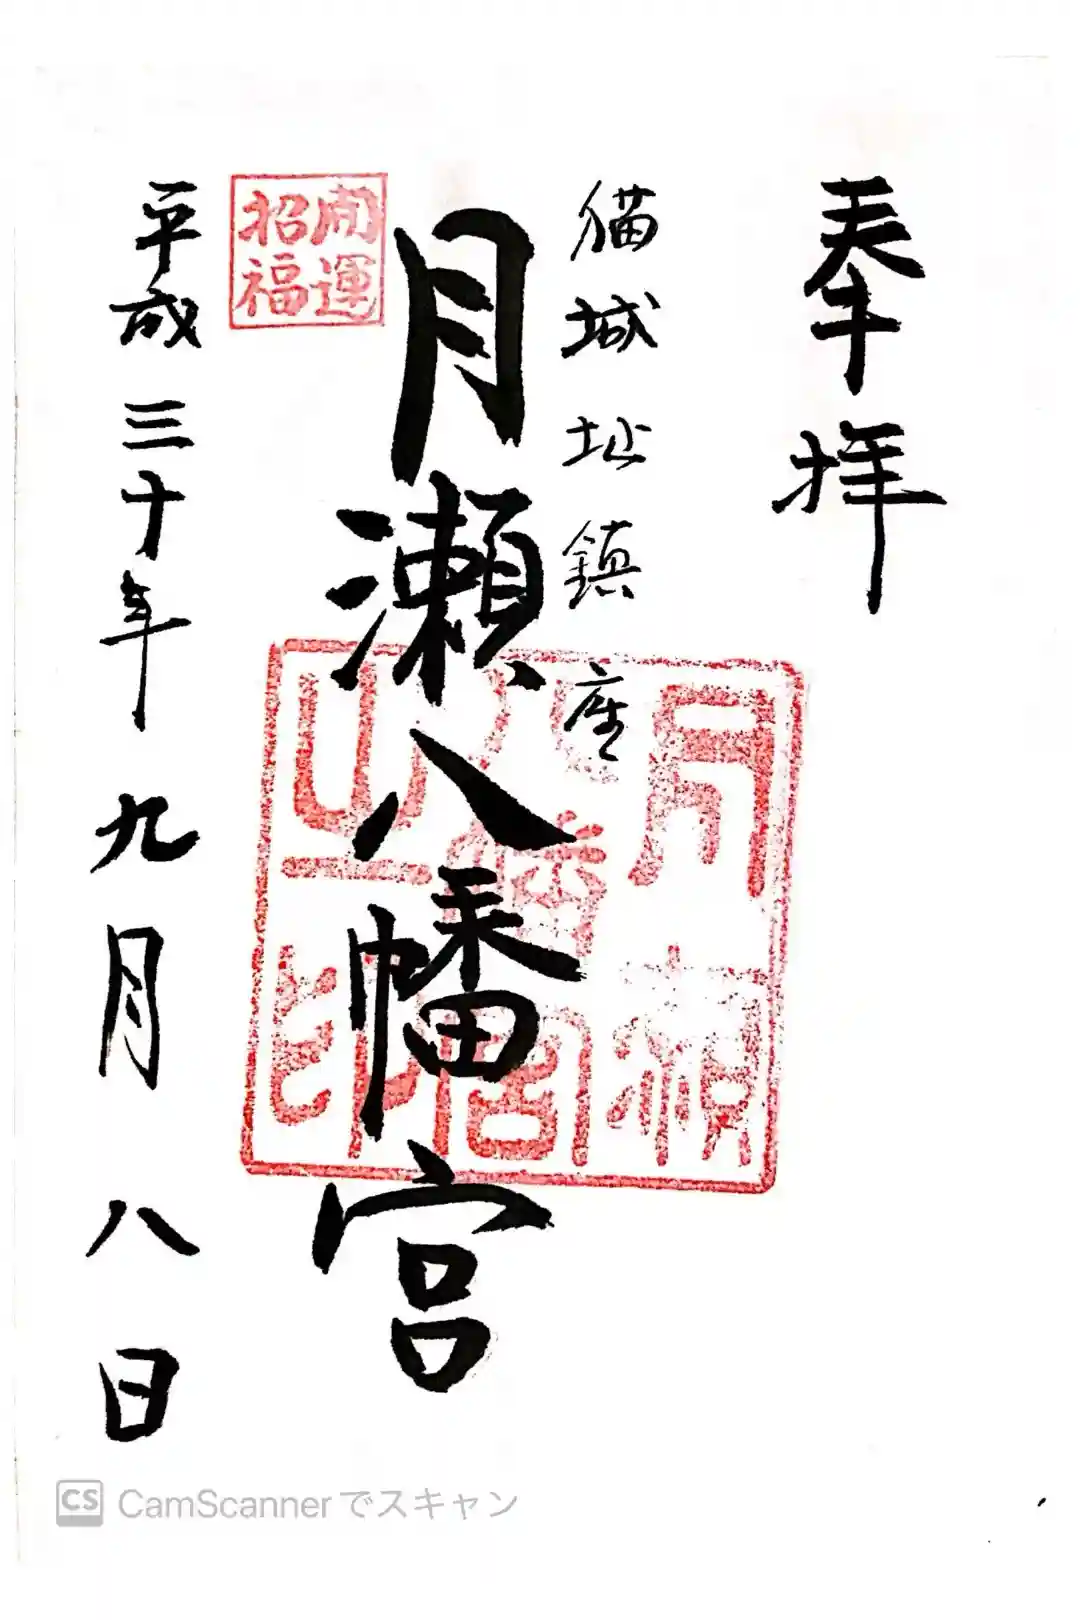 奉拝
猫城址鎮座
月瀬八幡宮
開運
招福
月瀬
八幡宮
之印
平成三十年九月八日
CS CamScannerでスキャン